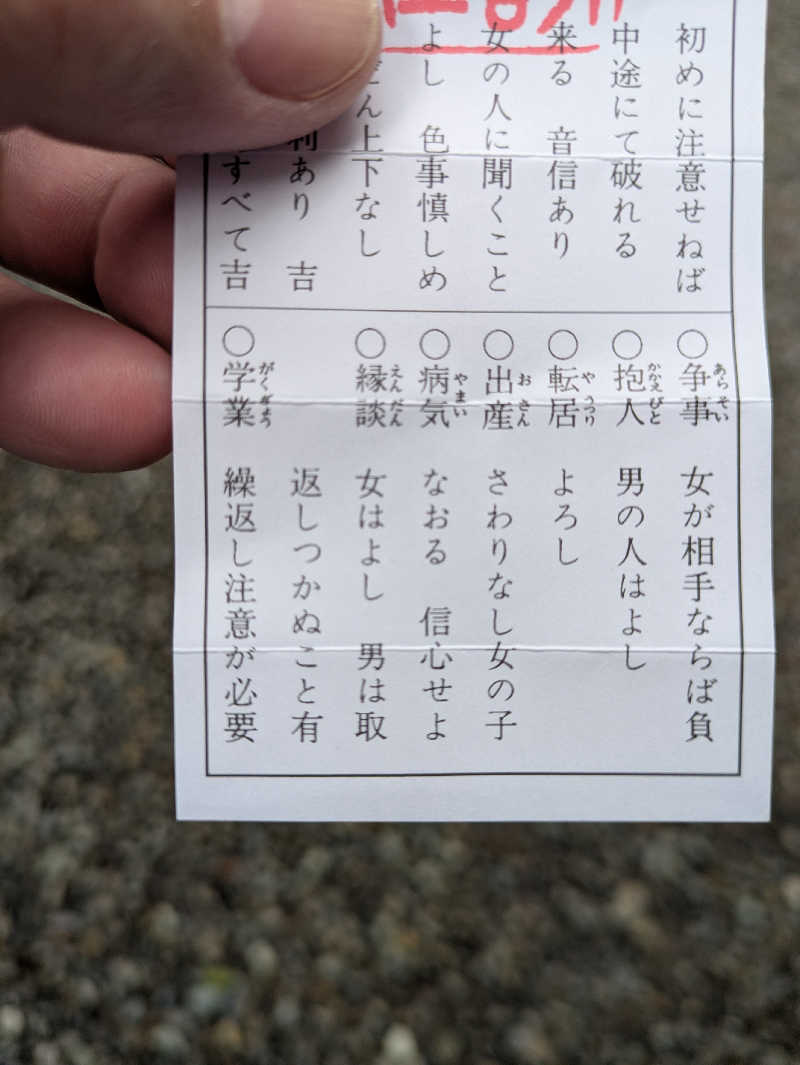 初めに注意せねば
中途にて破れる
来る 音信あり
女の人に聞くこと
よし 色事慎しめ
ん上下なし
利あり 吉
すべて吉
○争事 女が相手ならば負
あらそい
○抱人 男の人はよし
かかえびと
○転居 よろし
やうつり
○出産 さわりなし女の子
おさん
○病気 なおる 信心せよ
やまい
○縁談 女はよし 男は取
えんだん
返しつかぬこと有
○学業 繰返し注意が必要
がくぎょう